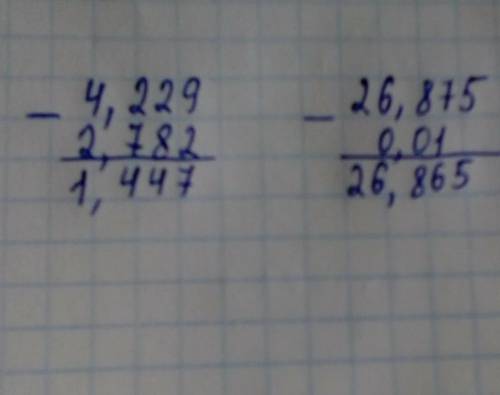 − 4,229
2,782
1,447
− 26,875
0,01
26,865